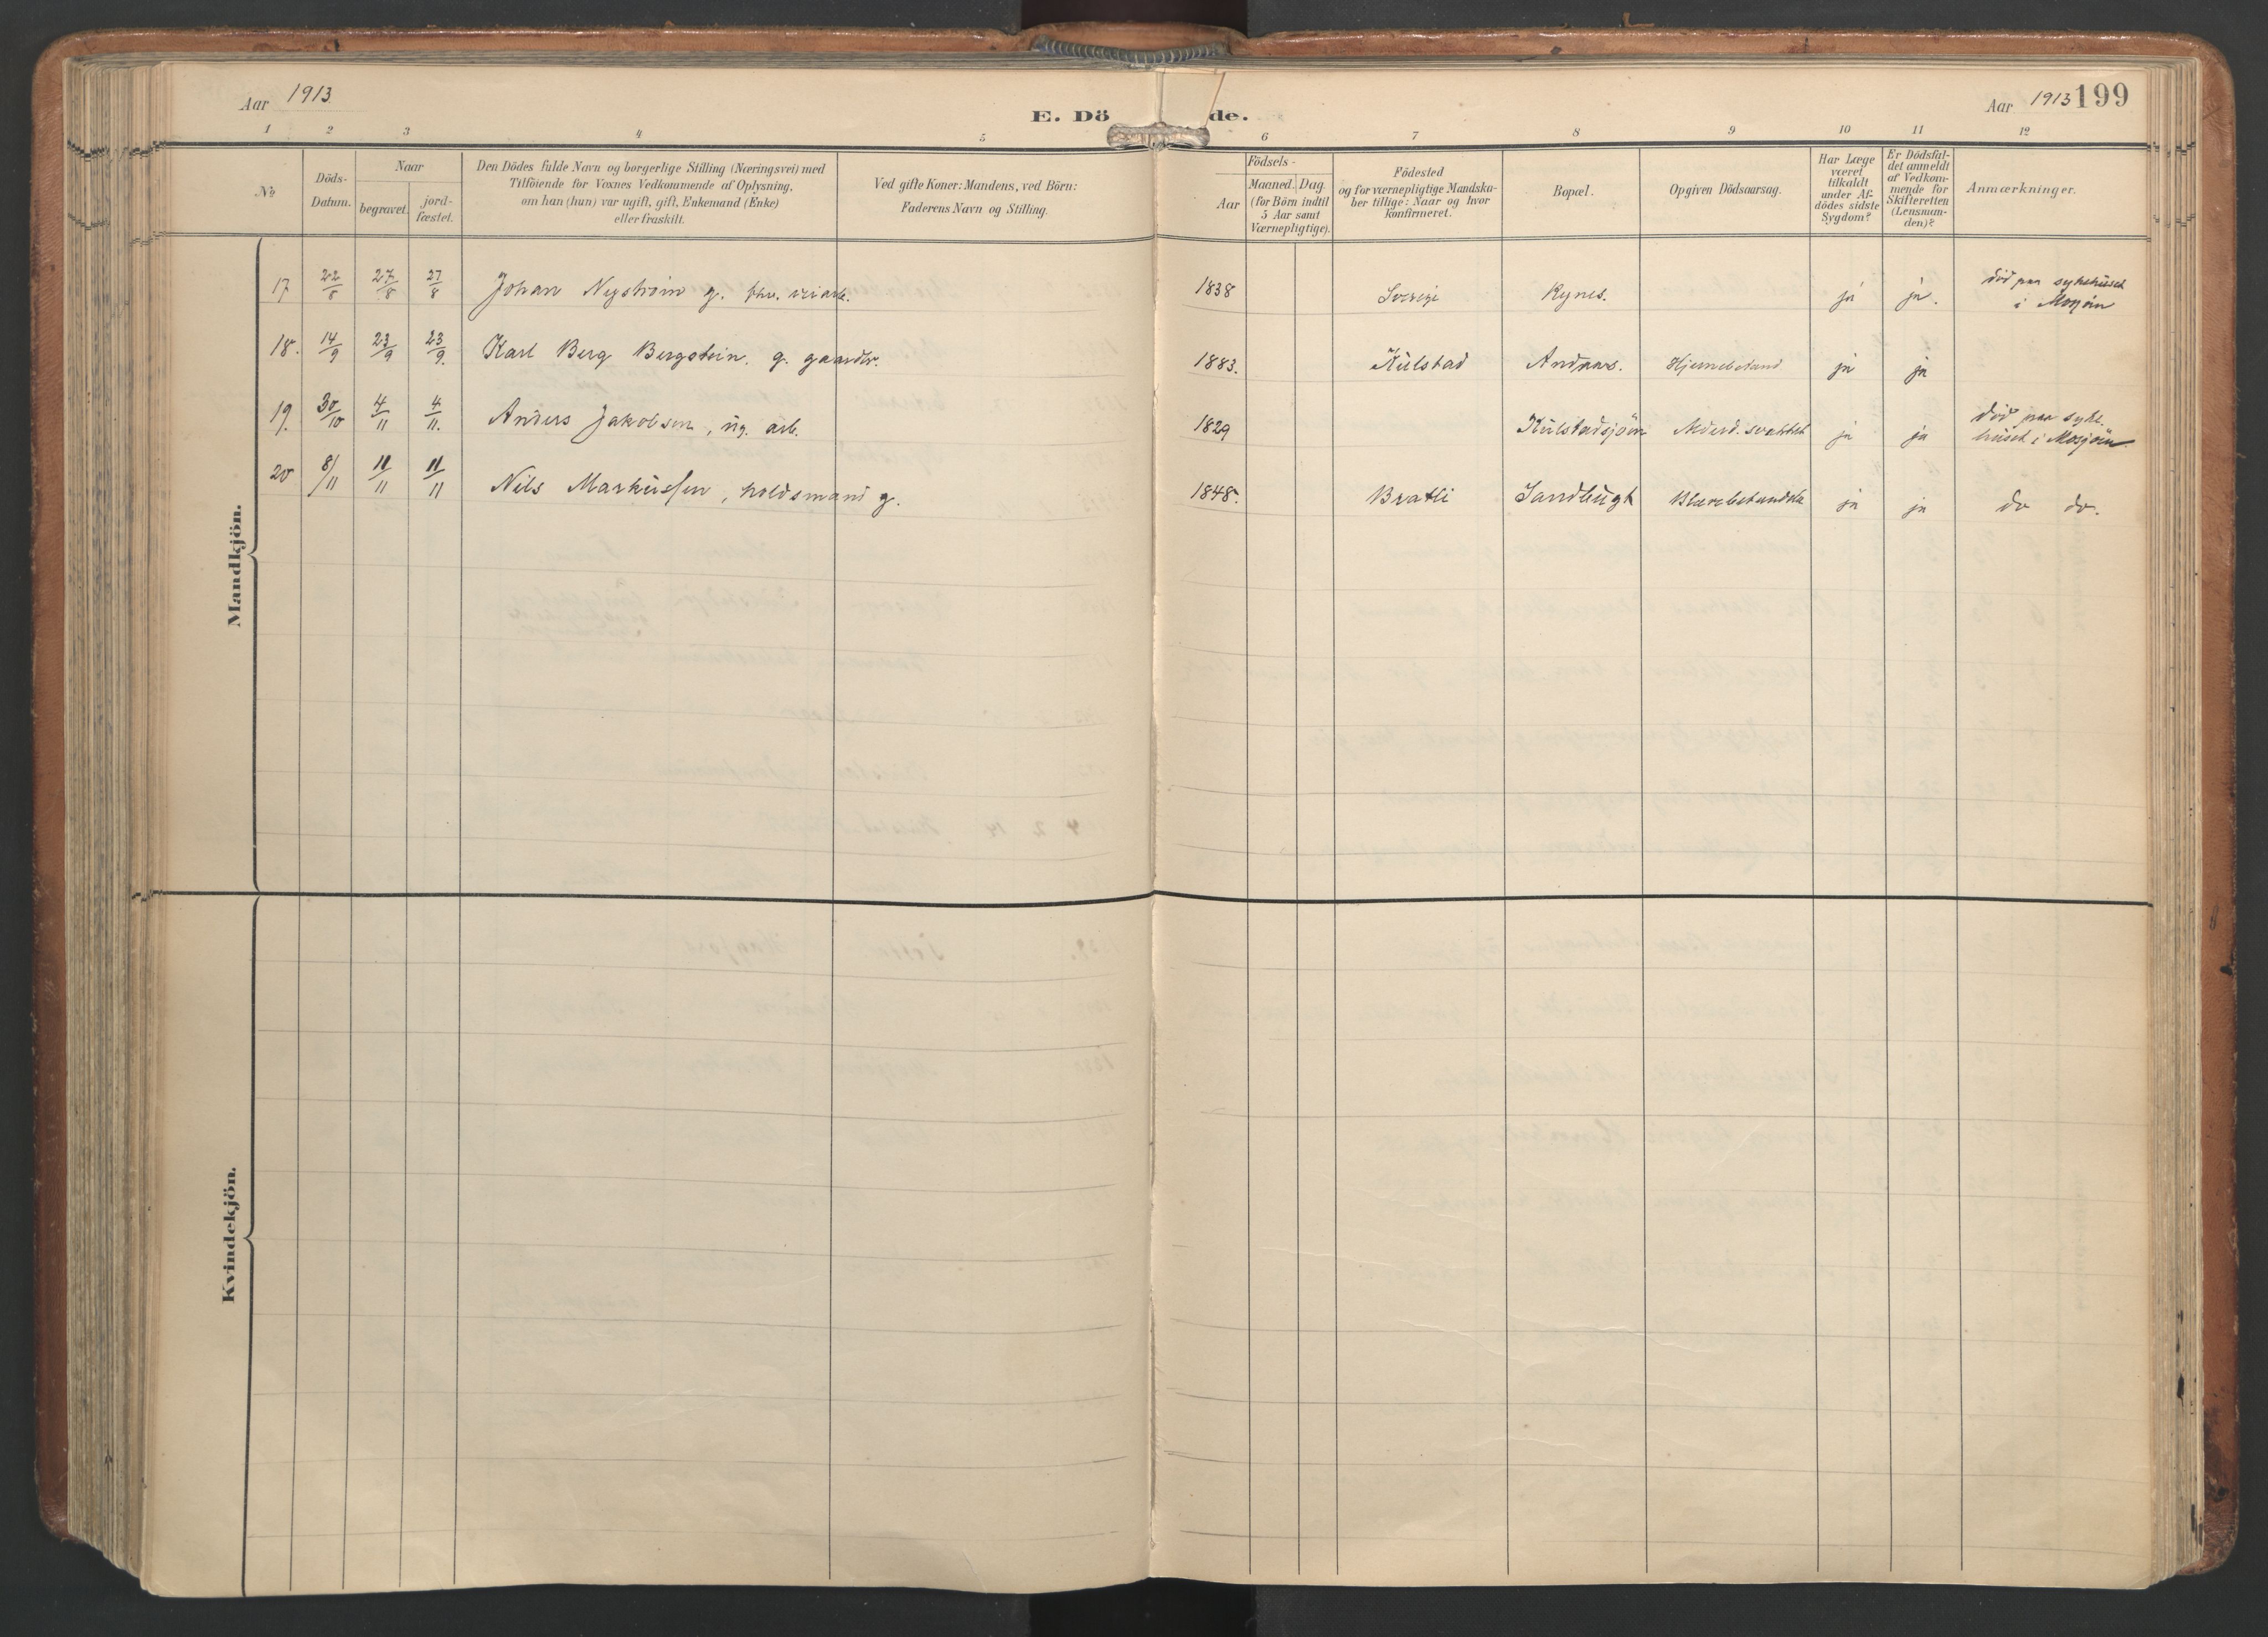 Aar 1913
E. Dö de.
Aar 1913 199
1 2 3 4 5 6 7 8 9 10 11 12
№
Döds-
Datum.
Naar
begravet.
jord-
fæstet.
Den Dödes fulde Navn og borgerlige Stilling (Næringsvei) med
Tilföiende for Voxnes Vedkommende af Oplysning,
om han (hun) var ugift, gift, Enkemand (Enke)
eller fraskilt.
Ved gifte Koner: Mandens, ved Börn:
Faderens Navn og Stilling.
Födsels-
Aar
Maaned. Dag.
(for Börn indtil
5 Aar samt
Værnepligtige).
Födested
og for værnepligtige Mandska-
ber tillige: Naar og hvor
konfirmeret.
Bopæl.
Opgiven Dödsaarsag.
Har Læge
været
tilkaldt
under Af-
dödes sidste
Sygdom?
Er Dödsfal-
det anmeldt
af Vedkom-
mende for
Skifteretten
(Lensman-
den)?
Anmærkninger.
Mandkjön.
17 22/8 27/8 27/8 Johan Nyström g. 1838 Sverige Rynes. ja ja. död paa sykehuset
i Mosjöen
18. 14/9 23/9 23/9. Karl Berg Bergstein. g. gaardbr. 1883. Kulstad Andaas. Hjernebetænd ja ja
19. 30/10 4/11 4/11. Anders Jakobsen, ug. arb. 1829 Kulstadsjöen Alderd. svakhet ja ja död paa syke-
huset i Mosjöen
20 8/11 11/11 11/11 Nils Markussen, holdsmand g. 1848. Bratli Sandbugt Blærebetændelse ja ja do do.
Kvindekjön.